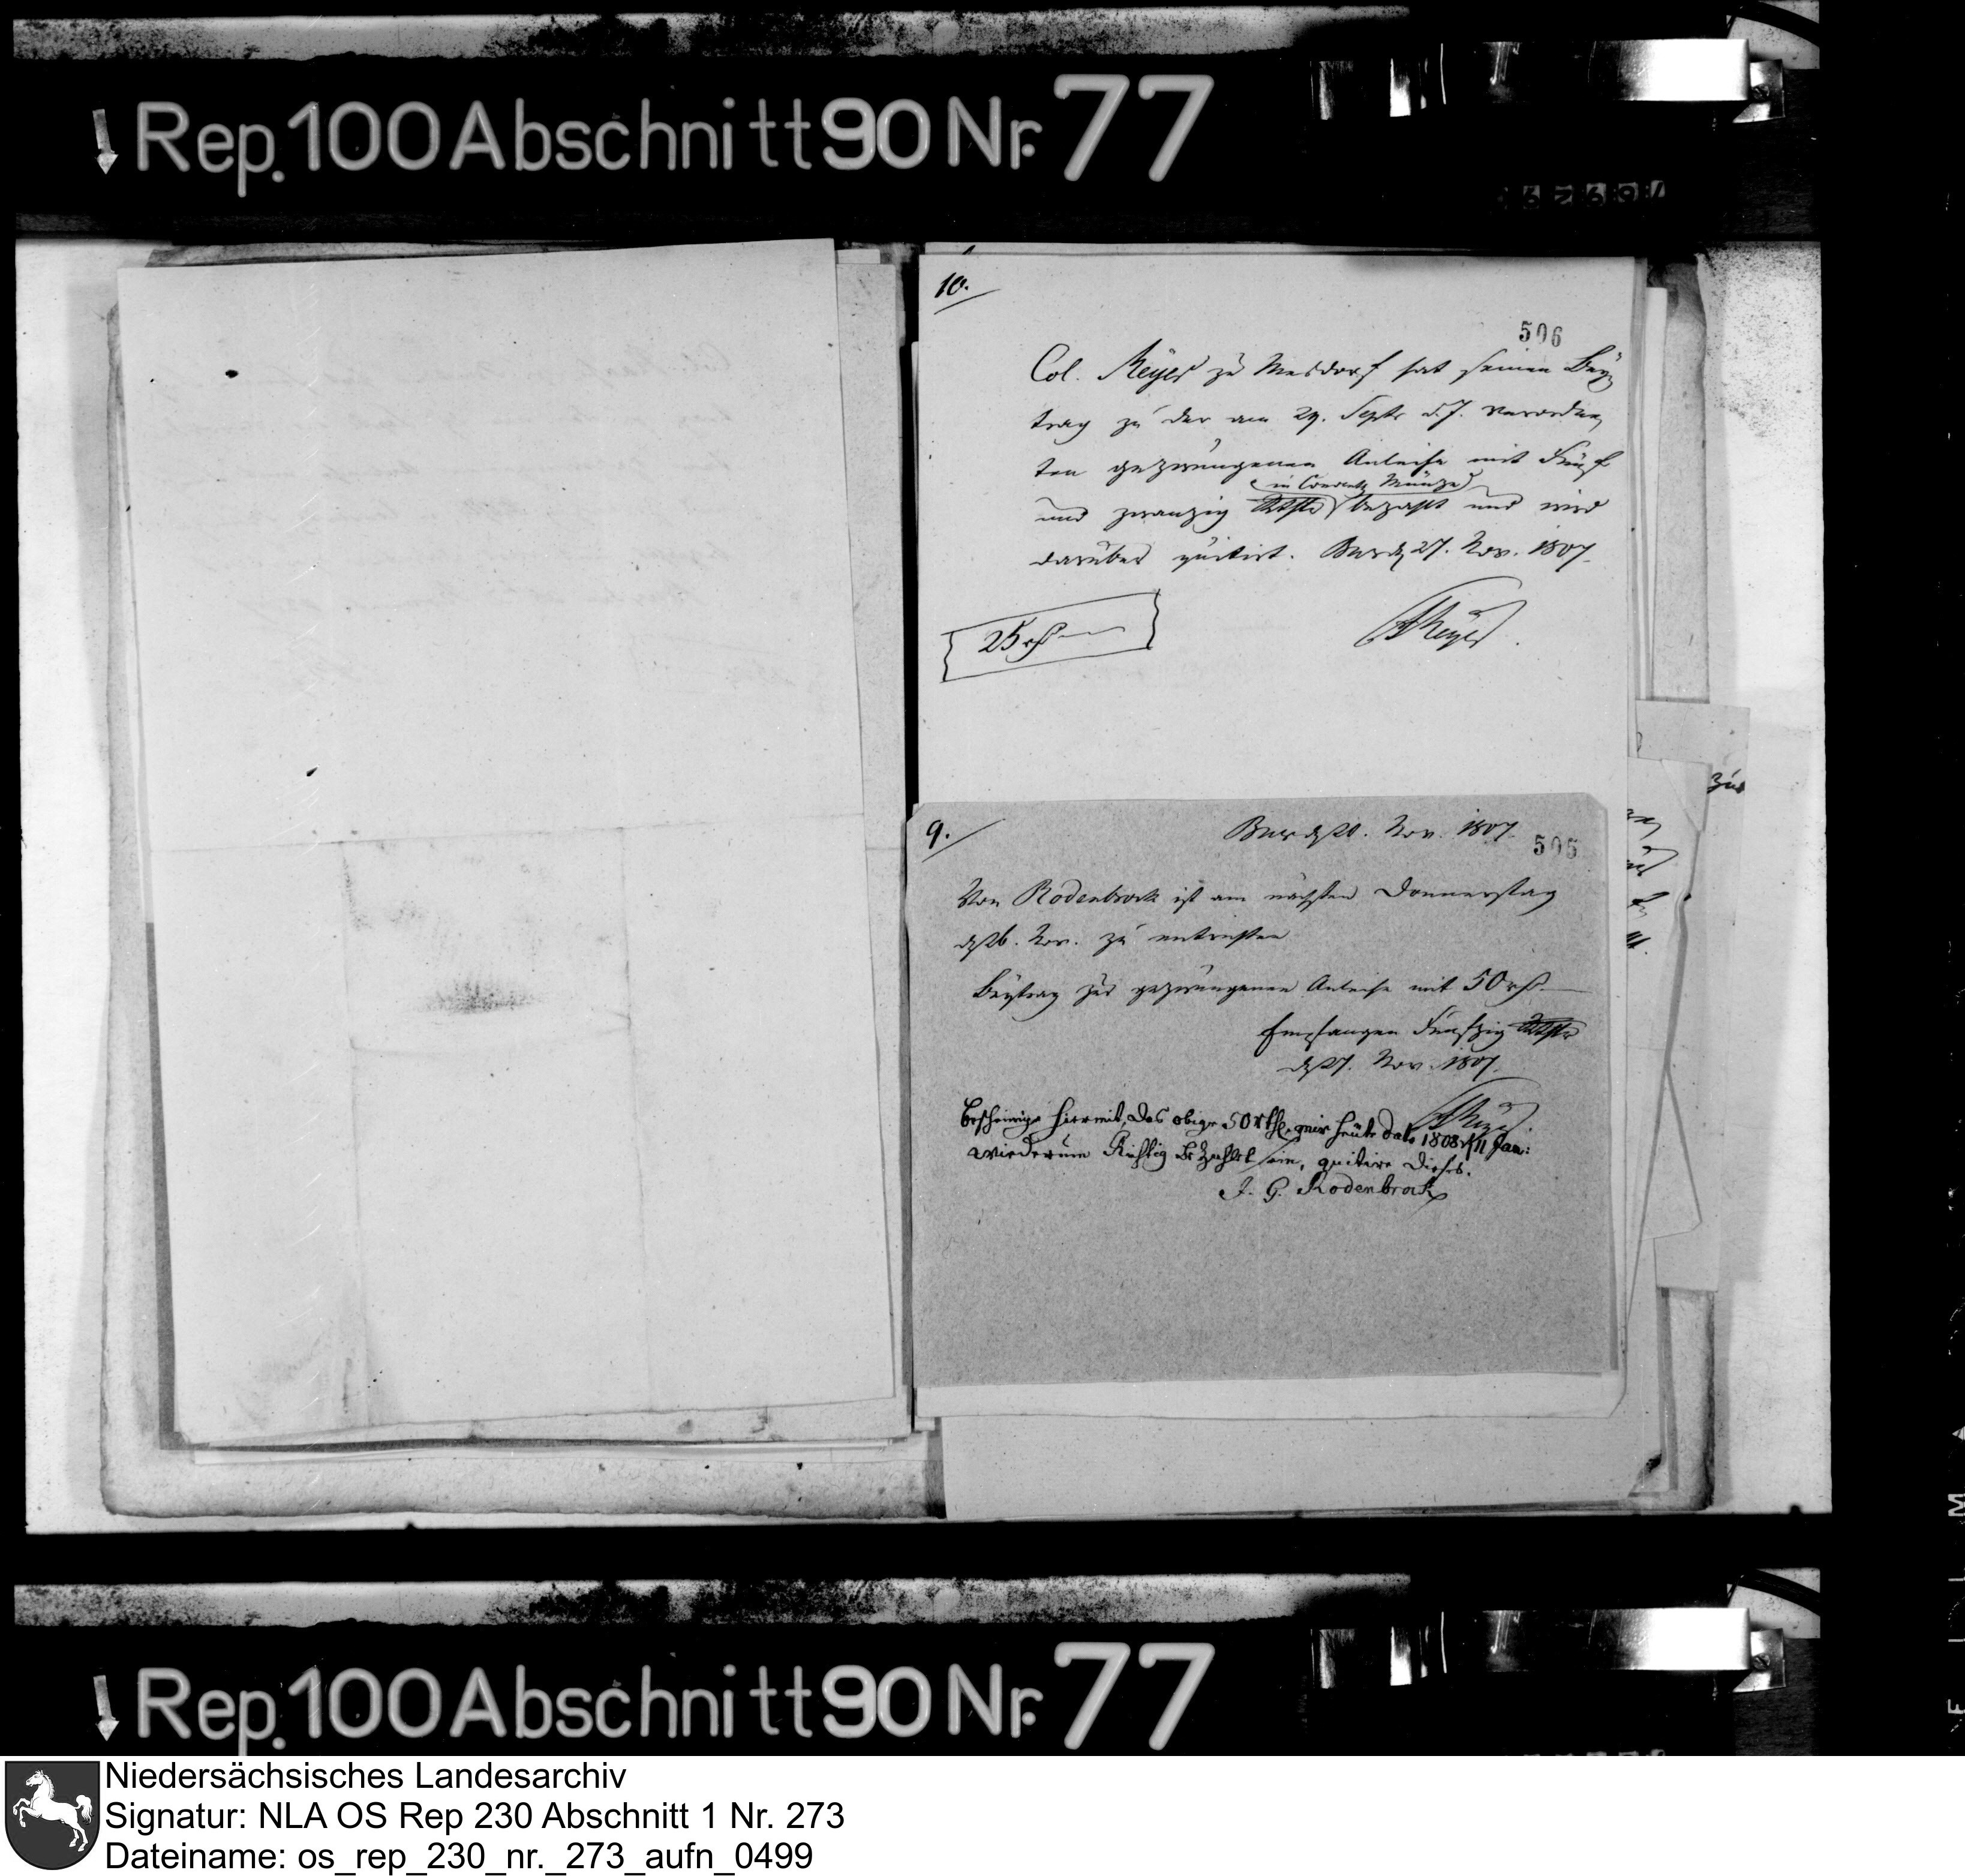 Rep. 100 Abschnitt 90 Nr. 77
10.
506
Col. Meyer zu Wesdorf hat seinen Bey-
trag zu der am 29. Septr d. J. verordne-
ten gezwungenen Anleihe mit Fünf
in Convent. Münze
und zwanzig Rthlr bezahlt und wird
darüber quitirt. Buer d 27. Nov. 1807.
25 rth
Meyer
9.
Buer d 20. Nov. 1807.
505
Von Rodenbrock ist am nächsten Donnerstag
d 26. Nov. zu entrichten
Beytrag zur gezwungenen Anleihe mit 50 rth.
Empfangen Funfzig Rthlr
d 27. Nov. 1807.
Meyer
Bescheinige hiermit, das obige 50 rthl. mir heute dato 1808 d 11 Jan:
wiederum Richtig Bezahlt sein, quitire dieses.
J. G. Rodenbrock
zur
Rep. 100 Abschnitt 90 Nr. 77
Niedersächsisches Landesarchiv
Signatur: NLA OS Rep 230 Abschnitt 1 Nr. 273
Dateiname: os_rep_230_nr._273_aufn_0499